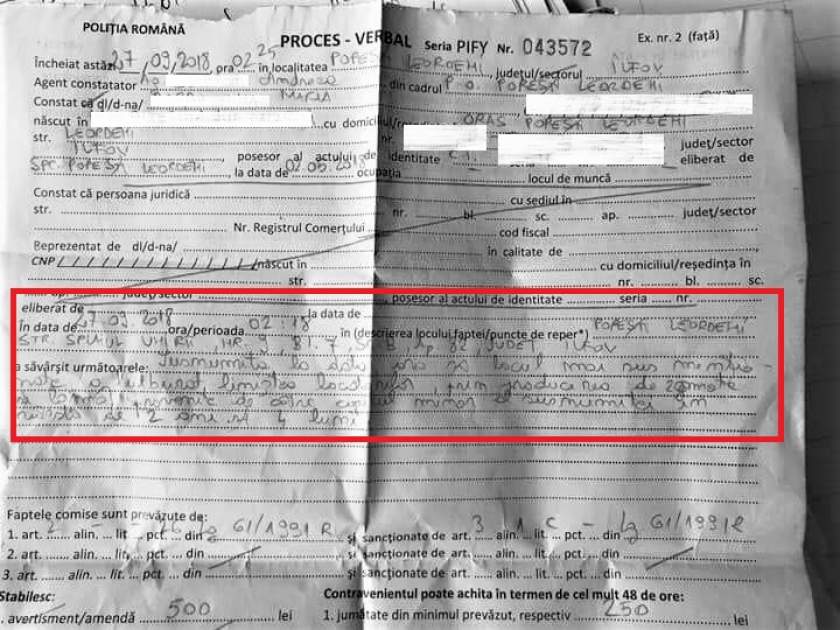 POLIȚIA ROMÂNĂ
PROCES - VERBAL Seria PIFY Nr. 043572 Ex. nr. 2 (față)
Încheiat astăzi 27/09.2018, ora 02 25 în localitatea POPEȘTI LEORDENI, județul/sectorul ILFOV
Agent constatator Andreea din cadrul P.O. POPEȘTI LEORDENI
Constat că dl/d-na/ MARIA
născut în cu domiciliul/re ORAȘ POPEȘTI LEORDENI
str. LEORDENI nr. județ/sector
ILFOV posesor al actului de identitate C.I. seria eliberat de
SPC POPEȘTI LEORDENI la data de 02.05.2018 ocupația locul de muncă
Constat că persoana juridică cu sediul în
str. nr. bl. sc. ap. județ/sector
Nr. Registrul Comerțului cod fiscal
Reprezentat de dl/d-na/ în calitate de
CNP născut în cu domiciliul/reședința în
str. nr. bl. sc.
județ/sector posesor al actului de identitate seria nr.
eliberat de la data de
În data de 27.09.2018 ora/perioada 02:18 în (descrierea locului faptei/puncte de reper*) POPEȘTI LEORDENI
STR. SPICUL UNIRII, NR. BL. 7 AP 82, JUDEȚ ILFOV
a săvârșit următoarele: Susnumita la data ora și locul mai sus mențio-
nate a tulburat liniștea locatarilor prin producerea de zgomote
de către copilul minor al susnumitei în
vârstă de 2 ani și 4 luni
Faptele comise sunt prevăzute de:
1. art. 2 alin. lit. 26 pct. din Lg 61/1991 R și sancționate de art. 3 alin. 1 lit. C pct. - din Lg 61/1991 R
2. art. alin. lit. pct. din și sancționate de art. alin. lit. pct. din
3. art. alin. lit. pct. din și sancționate de art. alin. lit. pct. din
Stabilesc: Contravenientul poate achita în termen de cel mult 48 de ore:
. avertisment/amendă 500 lei 1. jumătate din minimul prevăzut, respectiv 250 lei